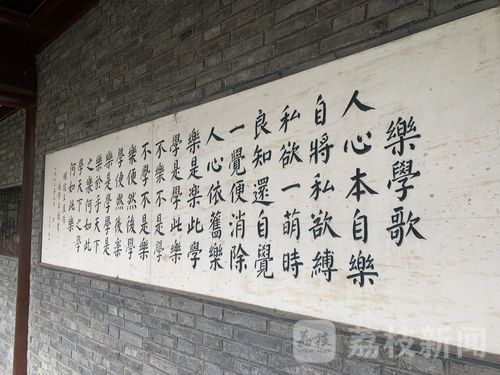 樂學歌
人心本自樂
自將私欲縛
私欲一萌時
良知還自覺
一覺便消除
人心依舊樂
樂是樂此學
學是學此樂
不樂不是學
不學不是樂
樂便然後學
學便然後樂
樂是學學是
樂於乎天下
之樂何如此
學天下之學
何如此樂
荔枝
荔枝新闻